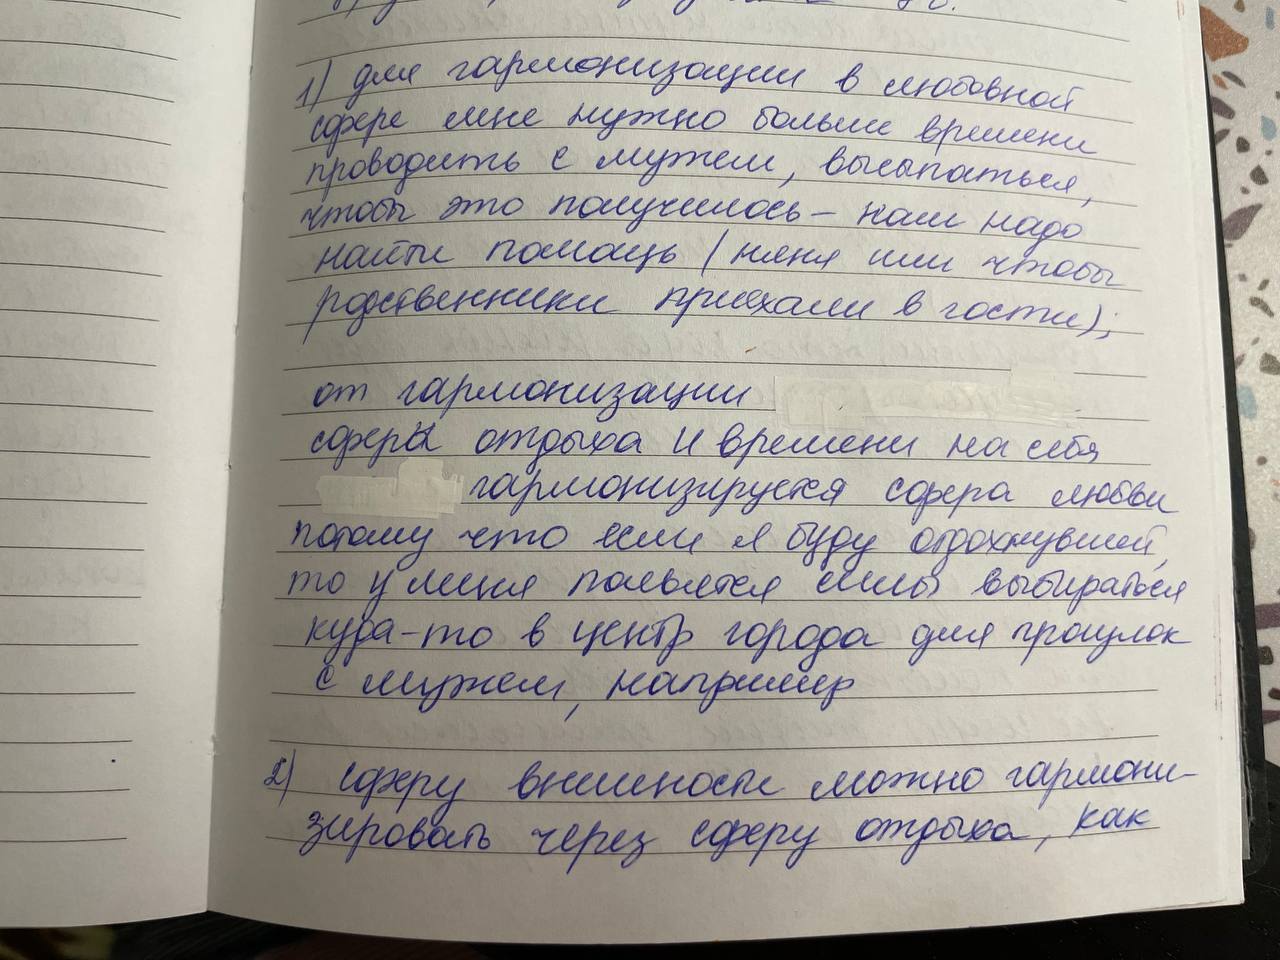 1) для гармонизации в любовной
сфере мне нужно больше времени
проводить с мужем, высыпаться,
чтобы это получилось – нам надо
найти помощь (няня или чтобы
родственники приехали в гости);
от гармонизации
сферы отдыха и времени на себя
гармонизируется сфера любви
потому что если я буду отдохнувшей,
то у меня появятся силы выбираться
куда-то в центр города для прогулок
с мужем, например
2) сферу внешности можно гармони-
зировать через сферу отдыха, как